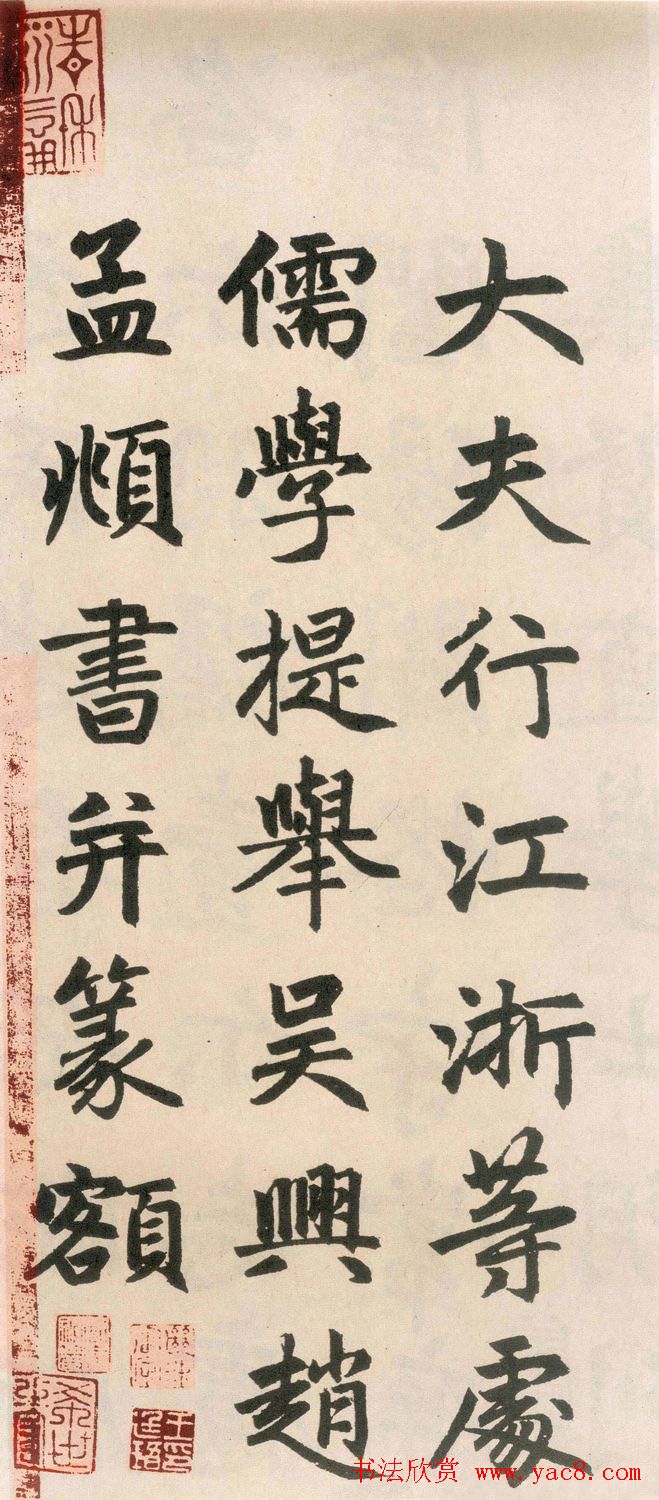 大夫行江浙等處
儒學提舉吴興趙
孟頫書并篆額
书法欣赏 www.yac8.com